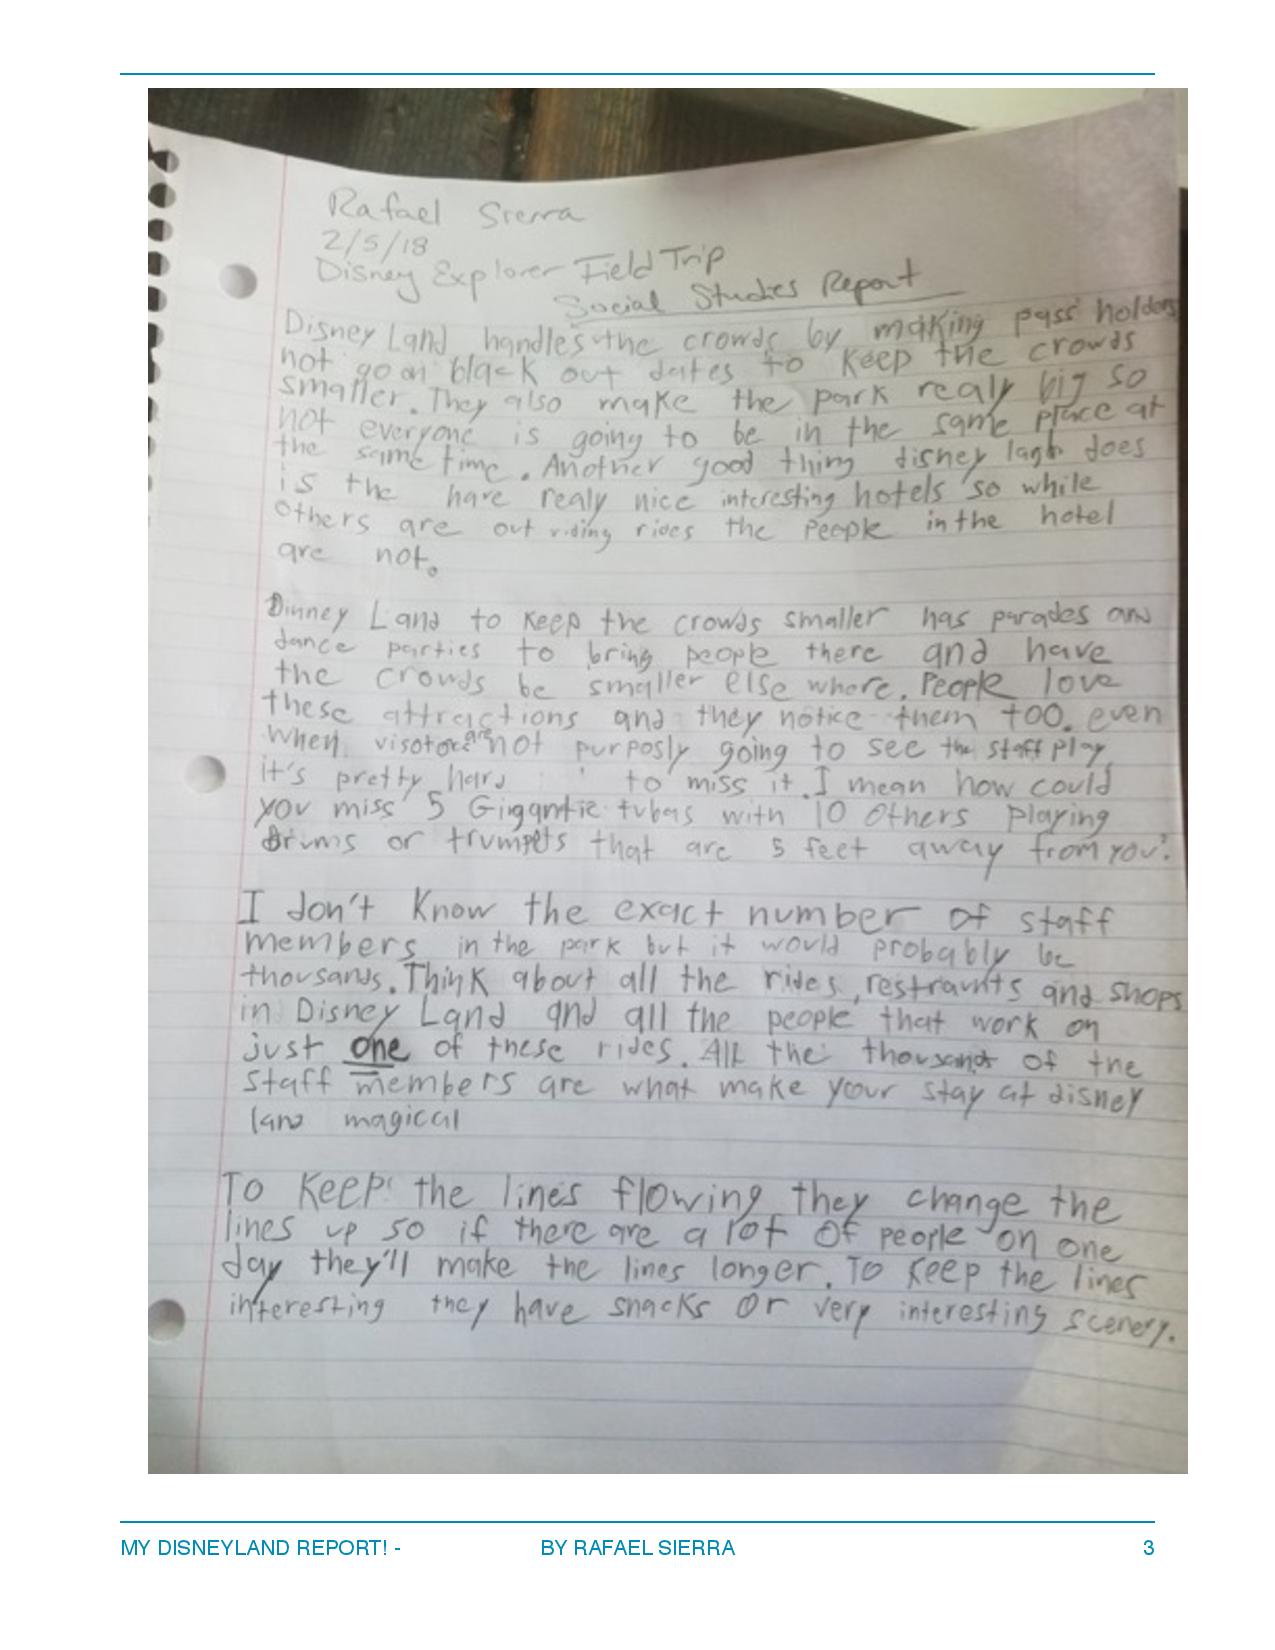 Rafael Sierra
2/5/18
Disney Explorer Field Trip
Social Studies Report
Disney Land handles the crowds by making pass holders
not go on black out dates to keep the crowds
smaller. They also make the park realy big so
not everyone is going to be in the same place at
the same time. Another good thing disney land does
is the have realy nice interesting hotels so while
others are out riding rides the people in the hotel
are not.
Dinney Land to keep the crowds smaller has parades and
dance parties to bring people there and have
the crowds be smaller else where. People love
these attractions and they notice them too. even
when are not purposly going to see the staff play,
it's pretty hard to miss it. I mean how could
you miss 5 Gigantic tubas with 10 others playing
drums or trumpets that are 5 feet away from you?
I don't know the exact number of staff
members in the park but it would probably be
thousands. Think about all the rides, restraunts and shops
in Disney Land and all the people that work on
just one of these rides. All the thousands of the
staff members are what make your stay at disney
land magical
To keep the lines flowing they change the
lines up so if there are a lot of people on one
day they'll make the lines longer. To keep the lines
interesting they have snacks or very interesting scenery.
MY DISNEYLAND REPORT! - BY RAFAEL SIERRA 3